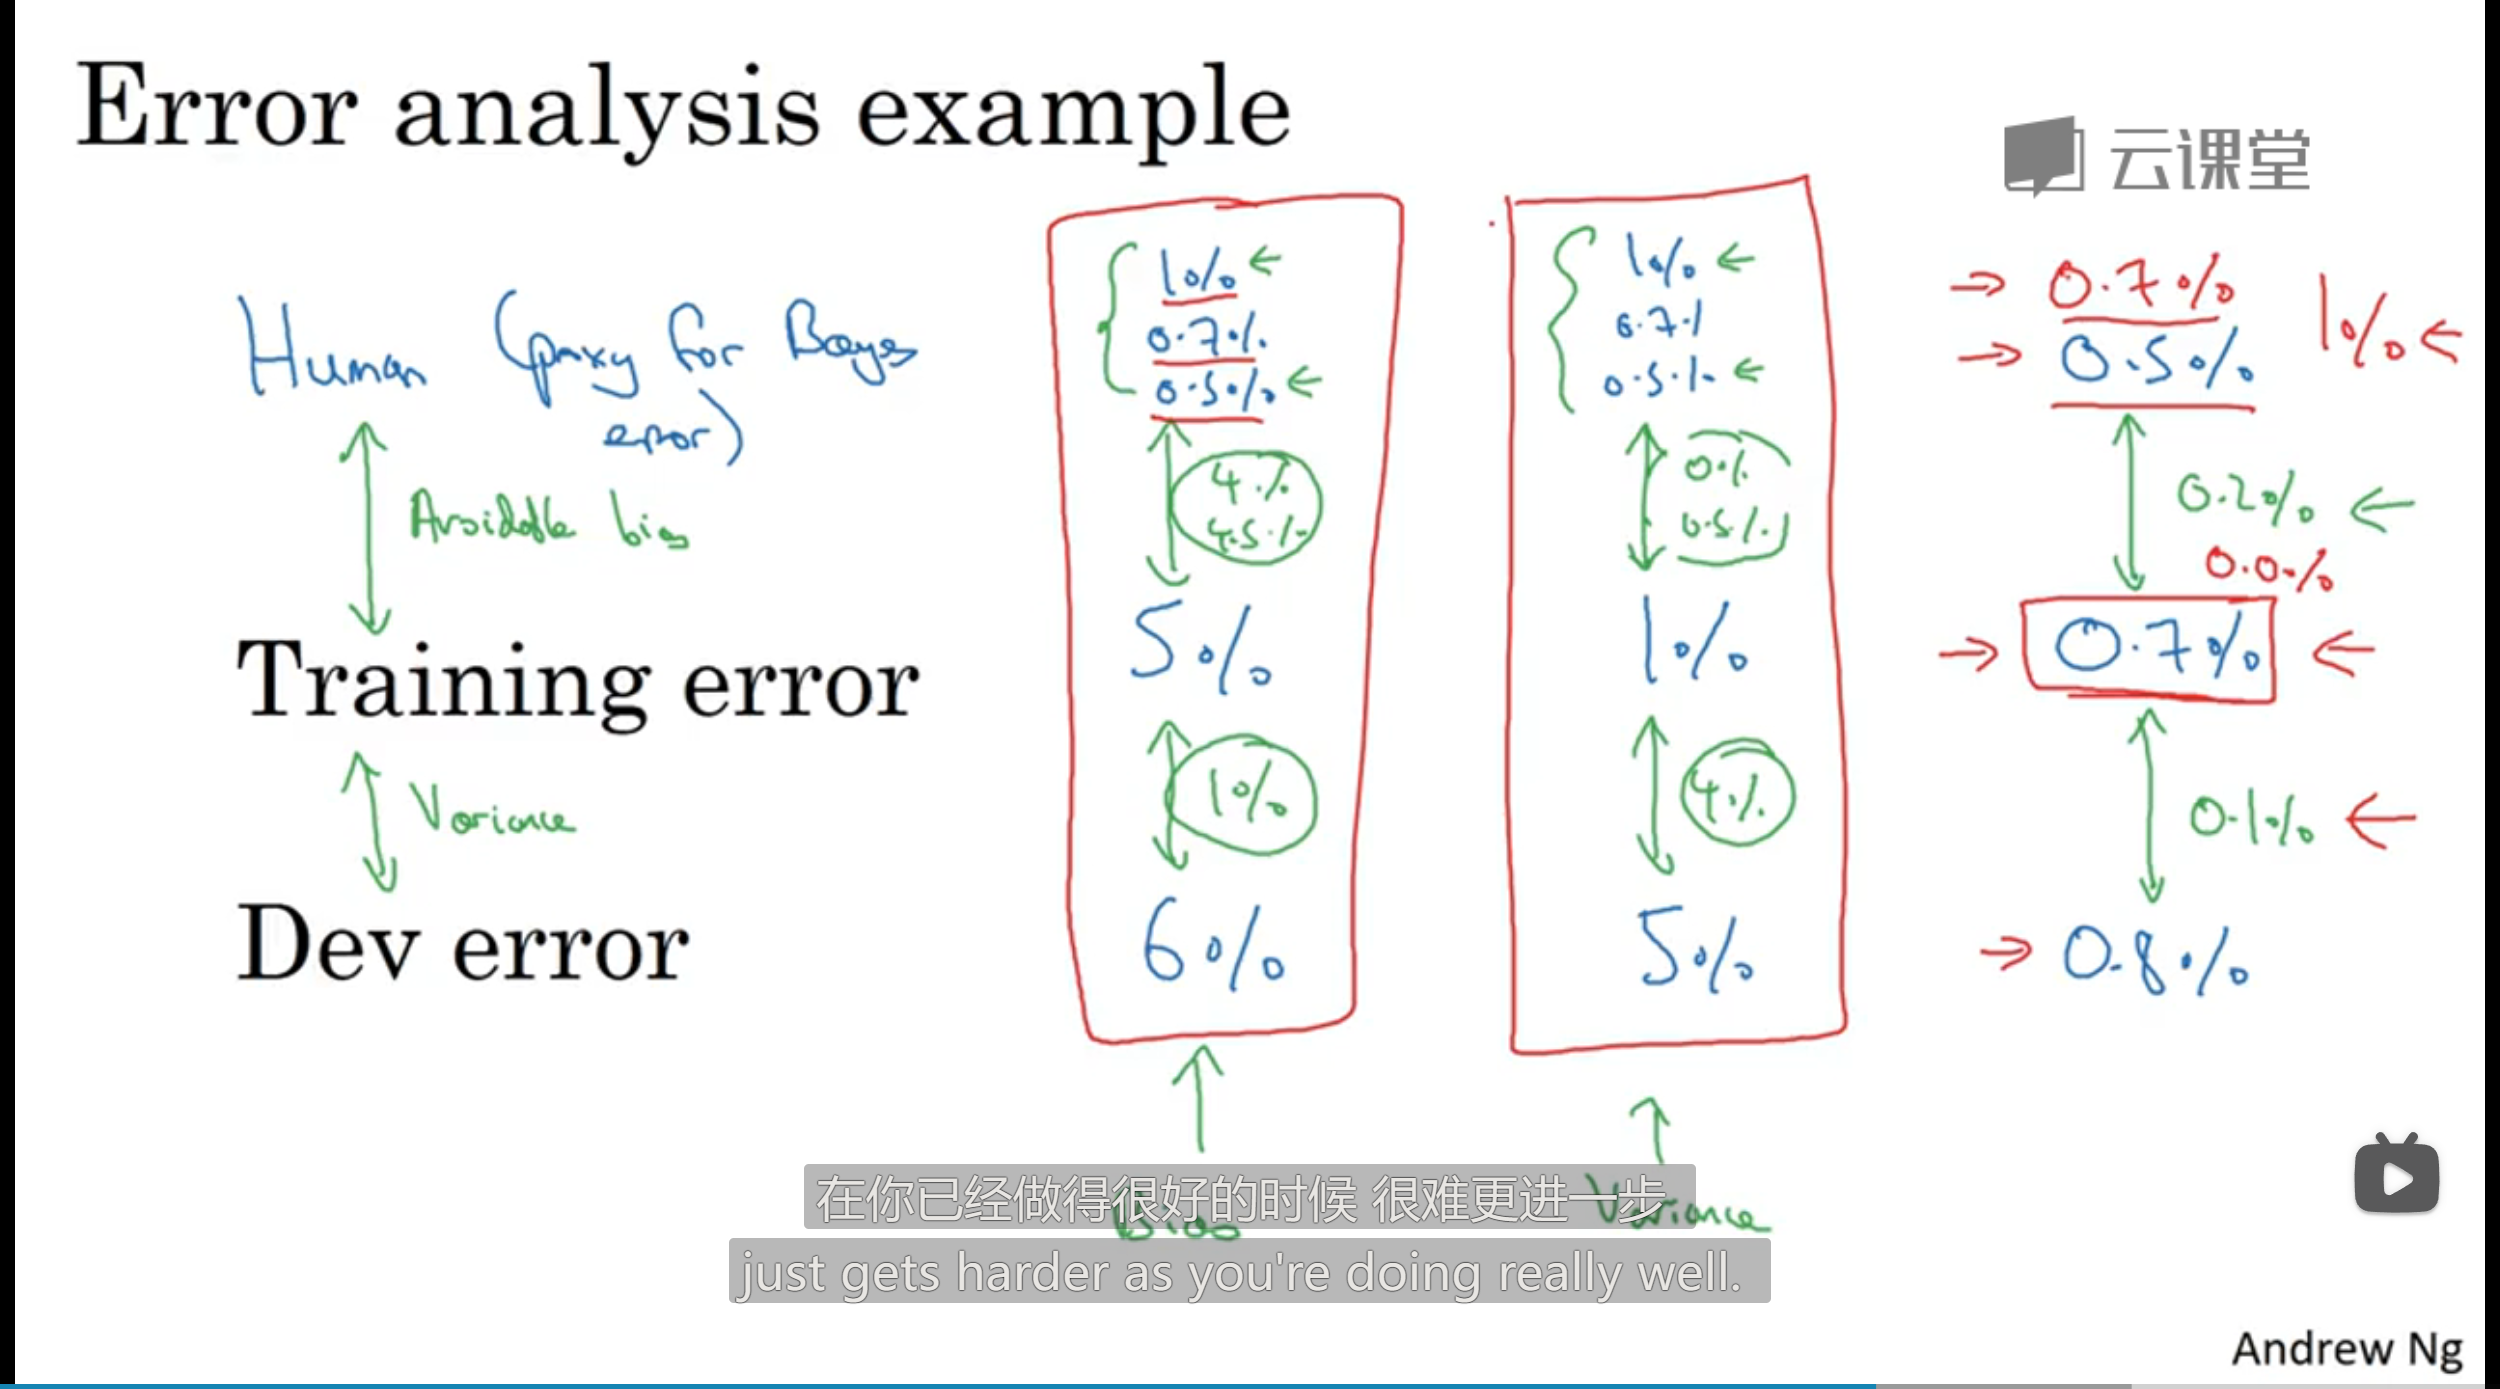 Error analysis example
云课堂
Human (proxy for Bayes
error)
Avoidable bias
Training error
Variance
Dev error
1%
0.7%
0.5%
4%
4.5%
5%
1%
6%
Bias
1%
0.7%
0.5%
0%
0.5%
1%
4%
5%
Variance
0.7%
1%
0.5%
0.2%
0.0%
0.7%
0.1%
0.8%
在你已经做得很好的时候 很难更进一步
just gets harder as you're doing really well.
Andrew Ng